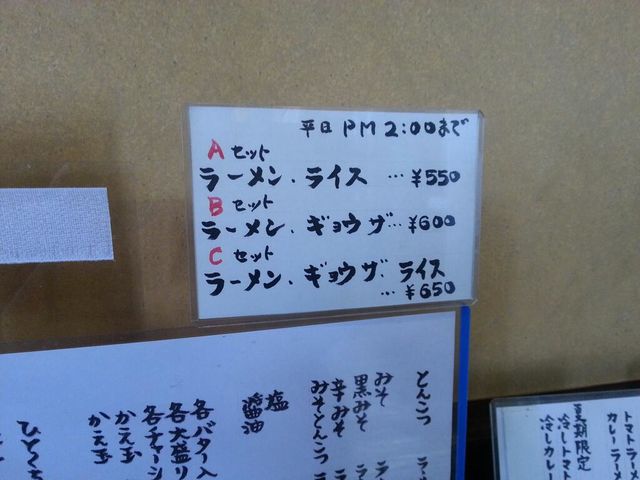 平日 PM 2:00まで
Aセット
ラーメン、ライス … ¥550
Bセット
ラーメン、ギョウザ … ¥600
Cセット
ラーメン、ギョウザ、ライス
… ¥650
とんこつ ラ
みそ ラ
黒みそ
辛みそ
みそとんこつ ラ
塩
醤油
各バター入
各大盛り
各チャーシ
かえ玉
かえ玉
ひとく
トマトラーメ
カレーラーメ
夏期限定
冷しトマト
冷しカレー